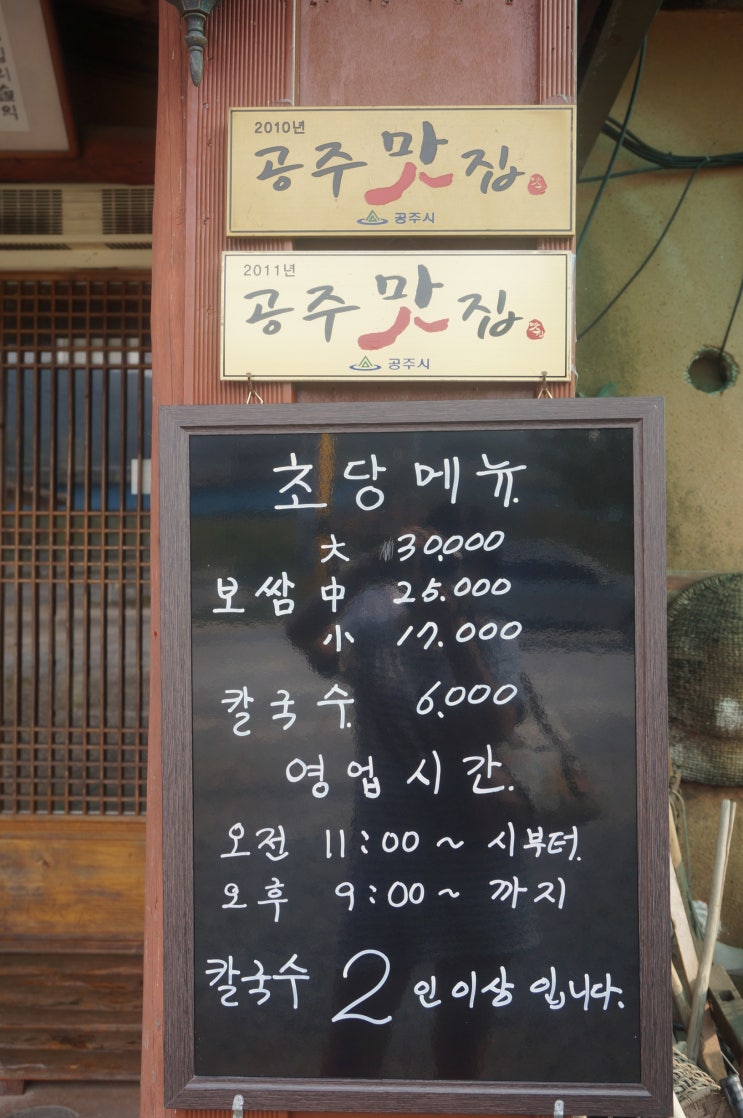 2010년
공주맛집
공주시
2011년
공주맛집
공주시
초당메뉴
大 30,000
보쌈 中 25.000
小 17.000
칼국수. 6,000
영업시간.
오전 11:00~ 시부터.
오후 9:00~ 까지
칼국수 2인이상 입니다.